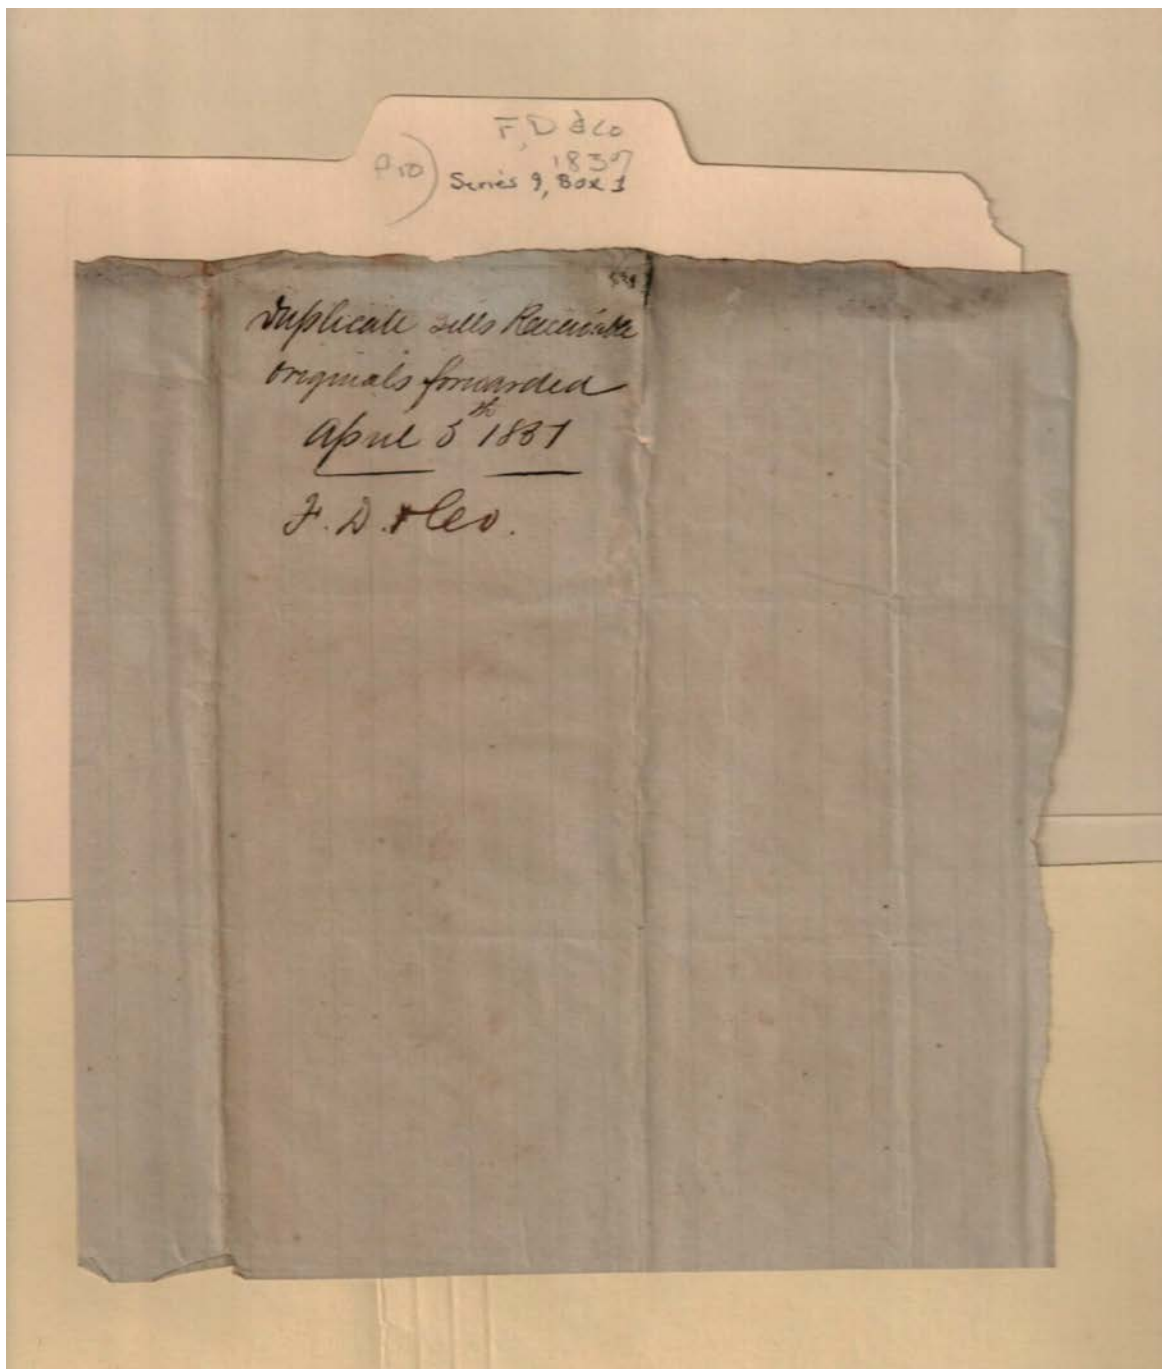 F, D & Co
1837
Pro)
Series 9, Box 1
Duplicate Bills Receivable
originals forwarded
April 5th 1837
F. D. & Co.